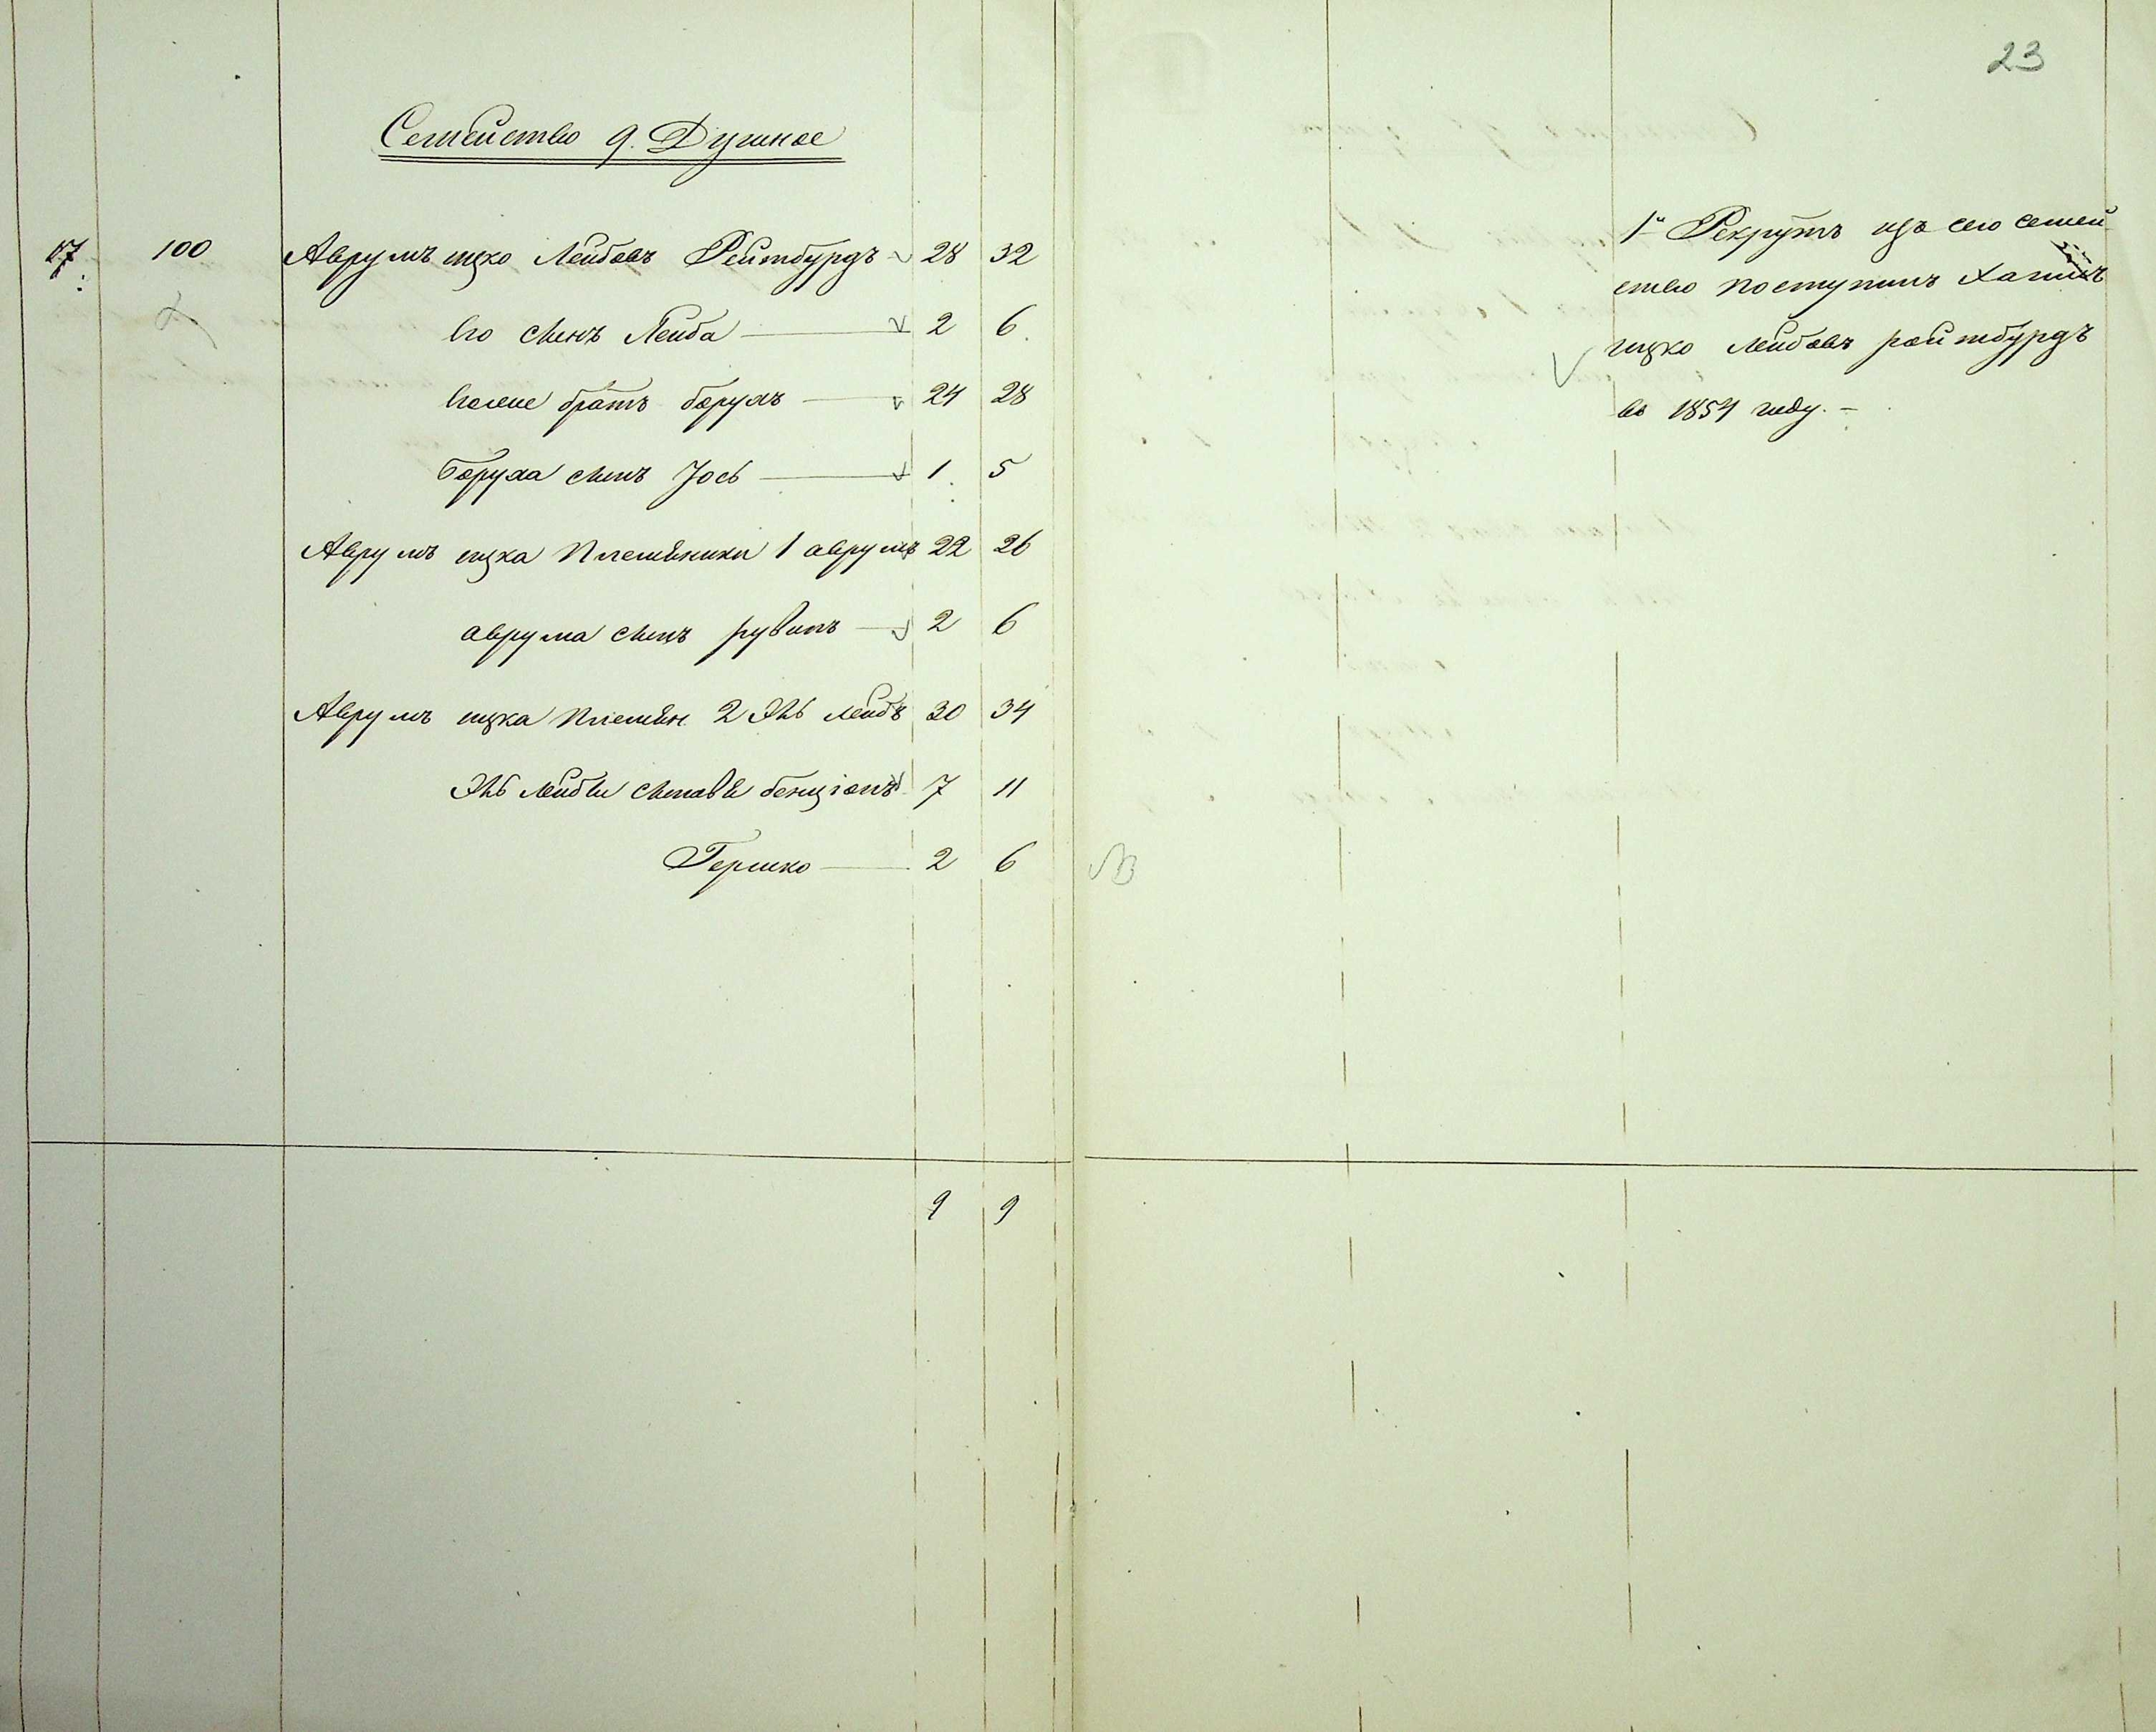 23
Семейство 9. Душное
17 100 Аврумъ ицко Лейбовъ Рейтбурдъ 28 32
Его сынъ Лейба 2 6
Еголие братъ борухъ 24 28
Боруха сынъ Іось 1 5
Аврумъ ицка Племѣники 1 аврумъ 22 26
аврума сынъ рувинъ 2 6
Аврумъ ицка племѣн. 2 Эль лейбъ 30 34
Эль лейбы сыновья бенціонъ 7 11
Гершко 2 6
9 9
1й Рекрутъ изъ сего семей
ство поступилъ Хаимъ
ицко лейбовъ райтбурдъ
въ 1854 году. –
NB